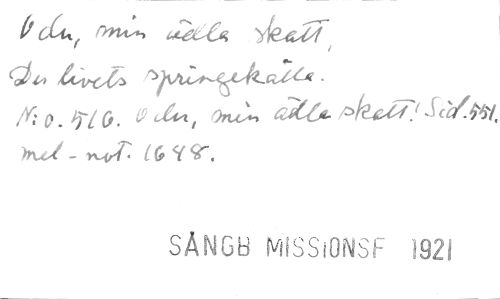 O du, min ädla skatt,
Du livets springekälla.
N:o. 516. O du, min ädla skatt! Sid. 551.
mel-not. 1648.
SÅNGB MISSIONSF 1921